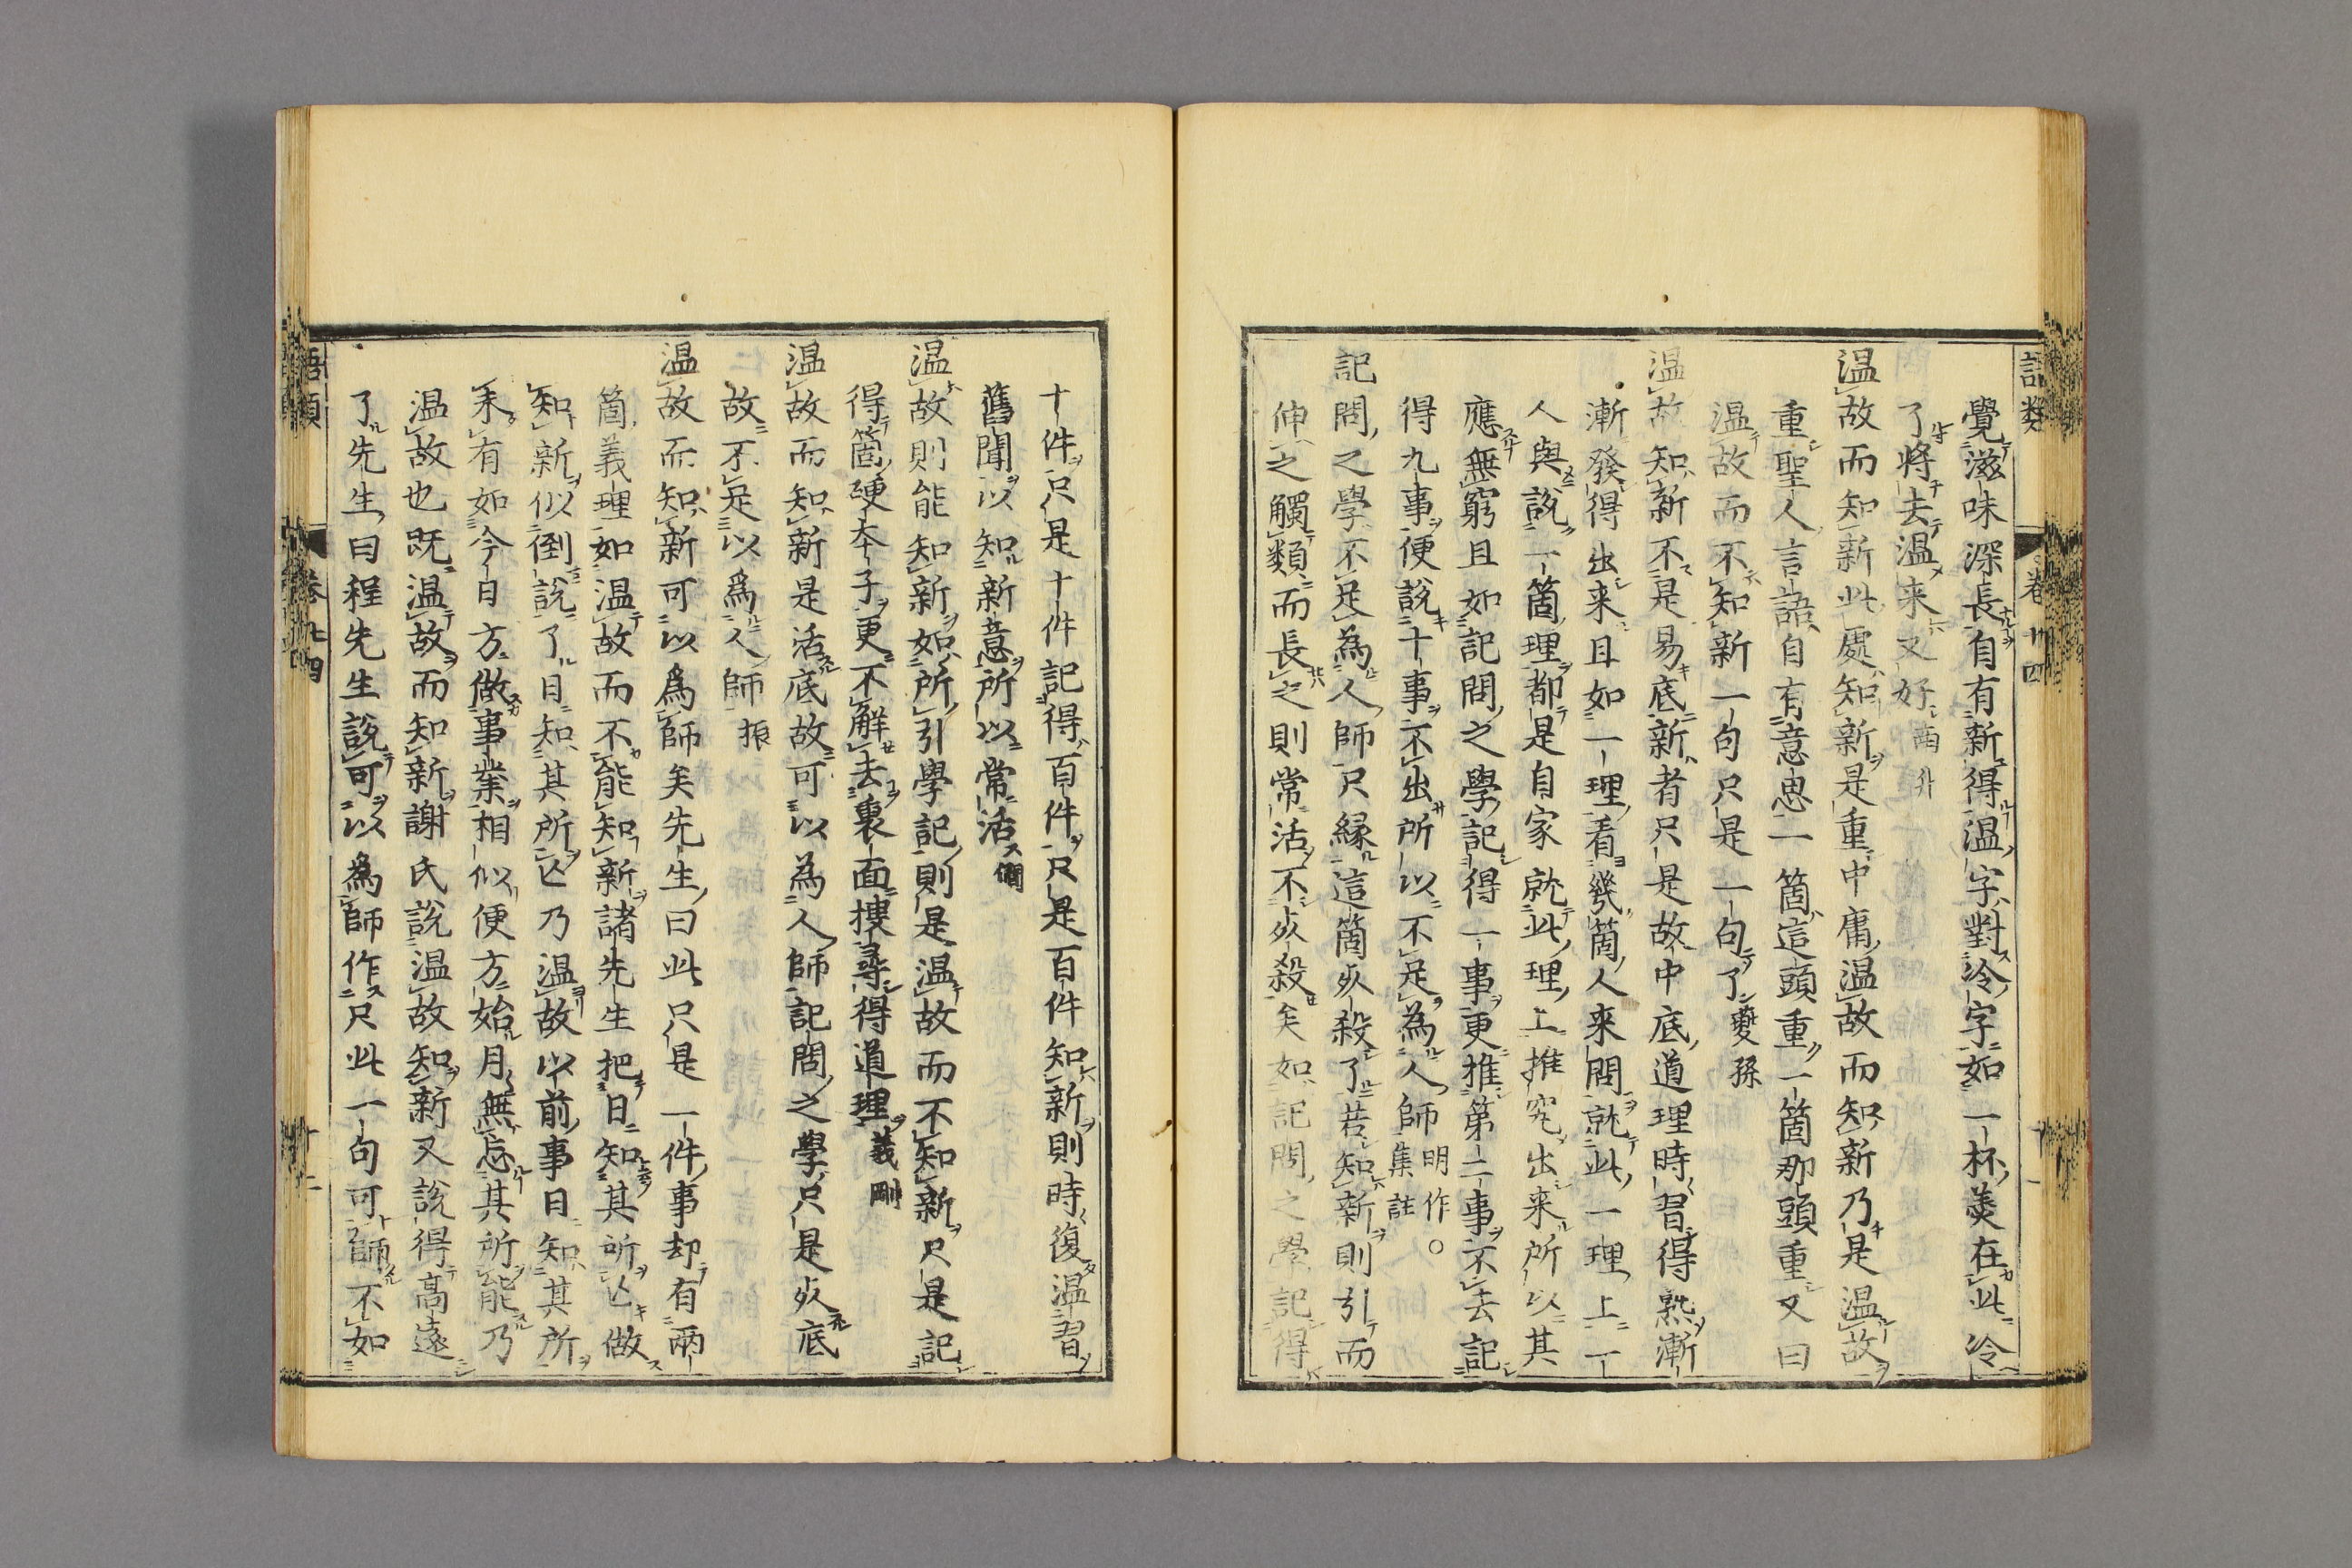 覺滋味深長自有新得温字對冷字如一杯羮在此冷
了將去温来又好 㽵升
温故而知新此處知新是重中庸温故而知新乃是温故
重聖人言語自有意思一箇這頭重一箇那頭重又曰
温故而不知新一句只是一句了 夔孫
温故知新不是易底新者只是故中底道理時習得熟漸
漸發得出来且如一理看幾箇人来問就此一理上一
人與說一箇理都是自家就此理上推究出来所以其
應無窮且如記問之學記得一事更推第二事不去記
得九事便說十事不出所以不足為人師 明作○集註
記問之學不足為人師只緣這箇死殺了若知新則引而
伸之觸類而長之則常活不死殺矣如記問之學記得
十件只是十件記得百件只是百件知新則時復温習
舊聞以知新意所以常活 僩
温故則能知新如所引學記則是温故而不知新只是記
得箇硬本子更不解去裏面搜尋得道理 義剛
温故而知新是活底故可以為人師記問之學只是死底
故不足以爲人師 振
温故而知新可以爲師矣先生曰此只是一件事却有兩
箇義理如温故而不能知新諸先生把日知其所亡做
知新似倒說了日知其所亡乃温故以前事日知其所
未有如今日方做事業相似便方始月無忘其所能乃
温故也既温故而知新謝氏說温故知新又說得高遠
了先生曰程先生說可以爲師作只此一句可師不如
語類
卷廿四
語類
卷廿四
十二